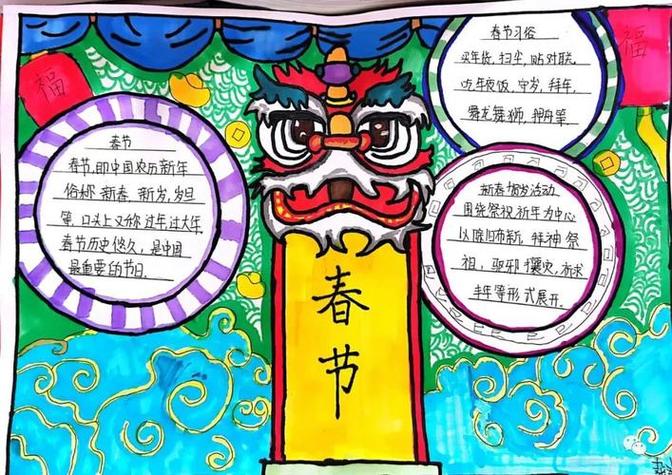 福
春节
春节,即中国农历新年
俗称 新春、新岁、岁旦
等,口头上又称 过年,过大年,
春节历史悠久,是中国
最重要的节日。
春节
春节习俗
买年货、扫尘、贴对联、
吃年夜饭、守岁、拜年、
舞龙舞狮、押舟等
福
新春相关活动
围绕祭祝祈年为中心
以除旧布新、拜神祭
祖、驱邪攘灾、祈求
丰年等形式展开。